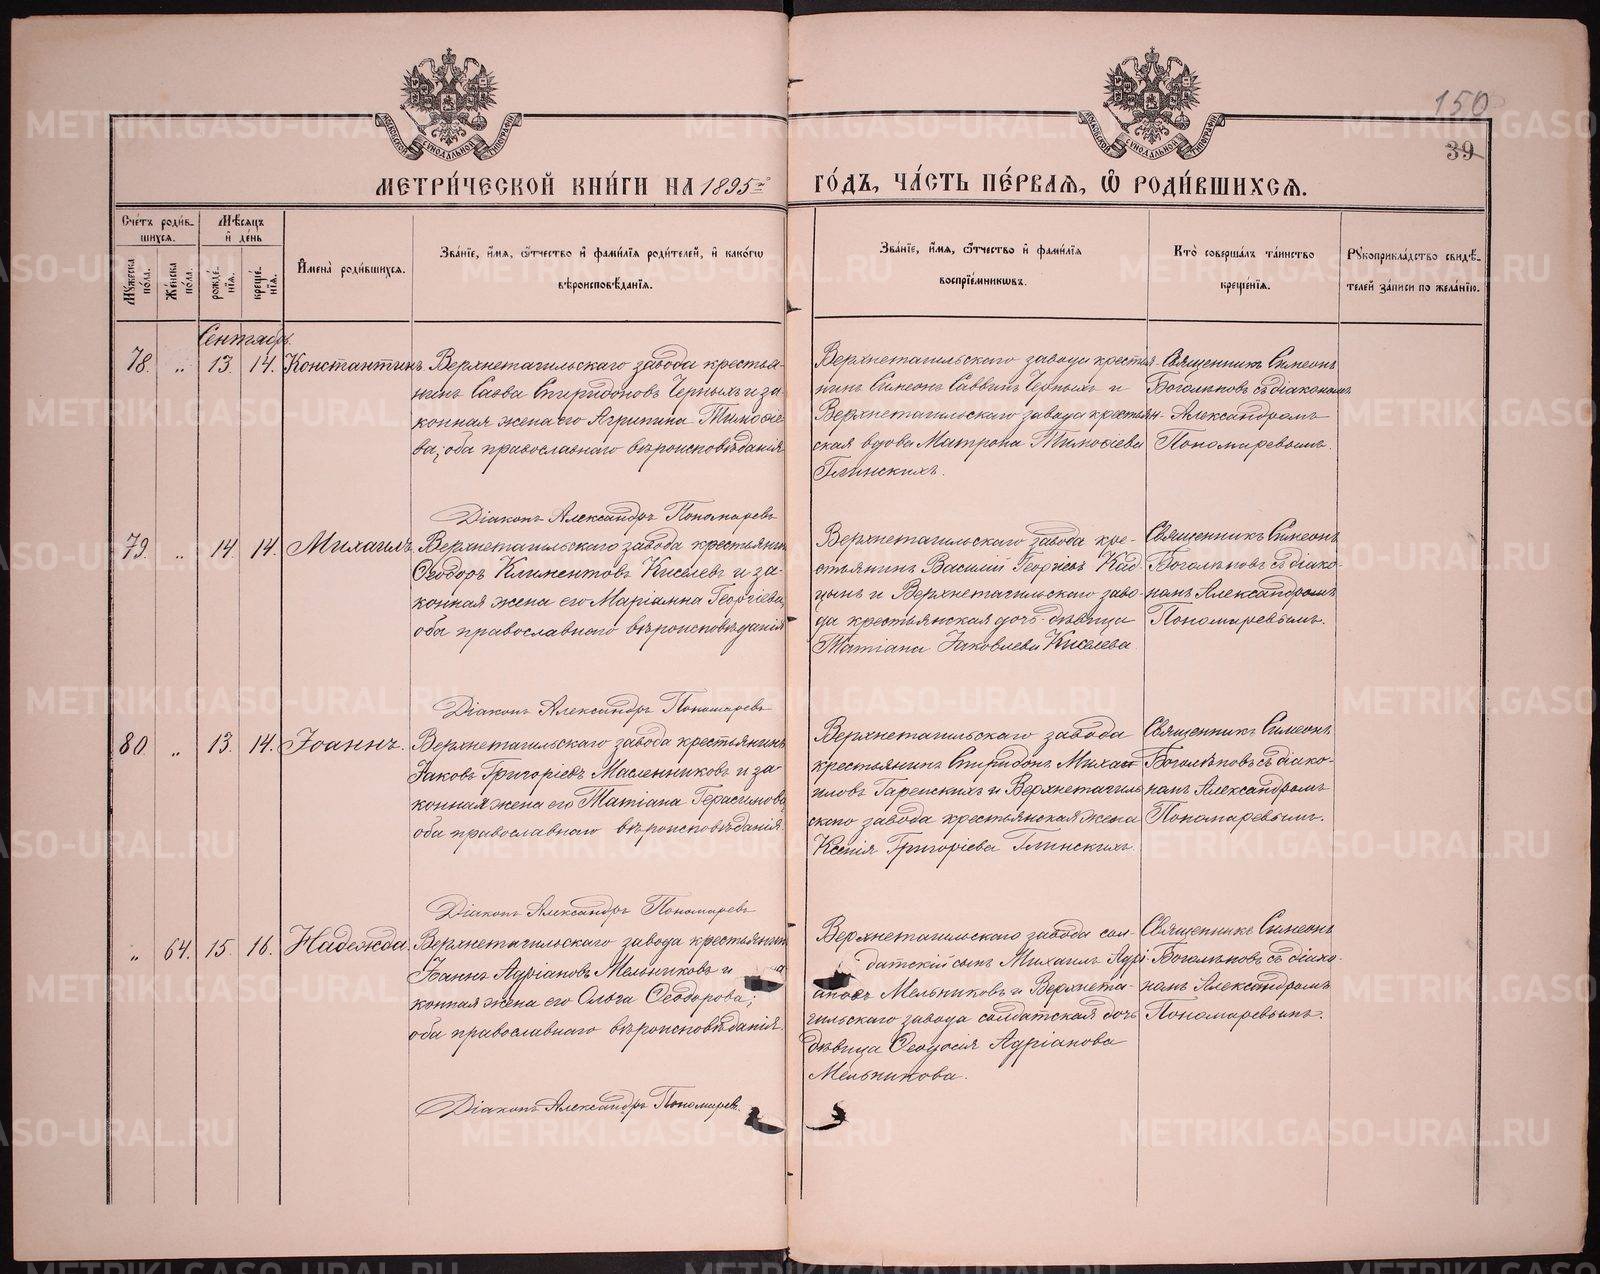 150
39
МЕТРИ́ЧЕСКОЙ КНИ́ГИ НА 1895й ГО́ДЪ, ЧА́СТЬ ПЕ́РВАЯ, Ѽ РОДИ́ВШИХСЯ.
Сче́тъ роди́в-
шихся.
Му́жеска по́ла.
Же́нска по́ла.
Мѣ́сяцъ
и҆ де́нь
рожде́-
нїя.
креще́-
нїя.
И҆мена̀ роди́вшихся.
Зва́нїе, и҆́мя, ѻ҆́тчество и҆ фами́лїя роди́телей, и҆ како́гѡ
вѣроисповѣ́данїя.
Зва́нїе, и҆́мя, ѻ҆́тчество и҆ фами́лїя
воспрїе́мниковъ.
Кто̀ соверша́лъ та́инство
креще́нїя.
Рꙋкоприкла́дство свидѣ́-
телей за́писи по жела́нїю.
Сентябрь
78. „ 13. 14. Константинъ
Верхнетагильскаго завода крестья-
нинъ Савва Спиридоновъ Черныхъ и за-
конная жена его Агрипина Тимоѳее-
ва; оба православнаго вѣроисповѣданія
Діаконъ Александръ Пономаревъ
Верхнетагильскаго завода крестья-
нинъ Симеонъ Саввинъ Черныхъ и
Верхнетагильскаго завода крестьян-
ская вдова Матрона Тимоѳеева
Глинскихъ.
Священникъ Симеонъ
Боголѣповъ съ діакономъ
Александромъ
Пономаревымъ.
79. „ 14. 14. Михаилъ
Верхнетагильскаго завода крестьянинъ
Ѳеодоръ Климентовъ Киселевъ и за-
конная жена его Маріамна Георгіева,
оба православнаго вѣроисповѣданія
Діаконъ Александръ Пономаревъ
Верхнетагильскаго завода кре-
стьянинъ Василій Георгіевъ Кад-
цынъ и Верхнетагильскаго заво-
да крестьянская дочь-дѣвица
Татіана Іаковлева Киселева
Священникъ Симеонъ
Боголѣповъ съ діако-
номъ Александромъ
Пономаревымъ.
80 „ 13. 14. Іоаннъ.
Верхнетагильскаго завода крестьянинъ
Іаковъ Григоріевъ Масленниковъ и за-
конная жена его Татіана Герасимова
оба православнаго вѣроисповѣданія.
Діаконъ Александръ Пономаревъ
Верхнетагильскаго завода
крестьянинъ Спиридонъ Миха-
иловъ Гаренскихъ и Верхнетагиль-
скаго завода крестьянская жена
Ксенія Григоріева Глинскихъ.
Священникъ Симеонъ
Боголѣповъ съ діако-
номъ Александромъ
Пономаревымъ.
„ 64. 15. 16. Надежда.
Верхнетагильскаго завода крестьянинъ
Іоаннъ Адріановъ Мельниковъ и
конная жена его Ольга Ѳеодорова;
оба православнаго вѣроисповѣданія.
Діаконъ Александръ Пономаревъ.
Верхнетагильскаго завода сол-
датскій сынъ Михаилъ Адрі-
ановъ Мельниковъ и Верхнета-
гильскаго завода солдатская дочь
дѣвица Ѳеодосія Адріанова
Мельникова.
Священникъ Симеонъ
Боголѣповъ съ діако-
номъ Александромъ
Пономаревымъ.